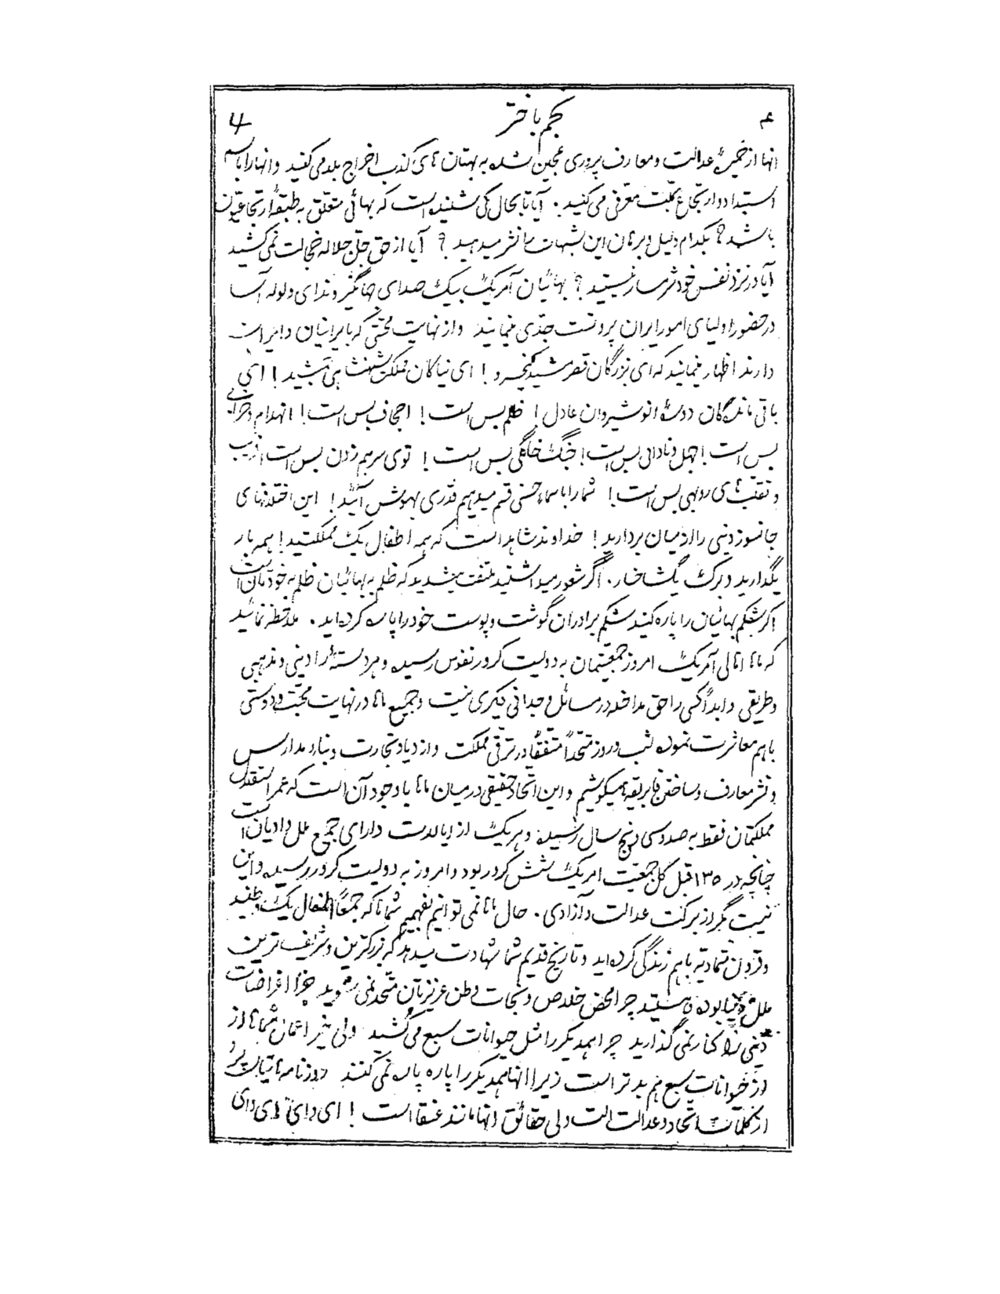 ۴ نجم باختر 4
انها از خمیرهٔ عدالت و معارف پروری عجین شده به بهتان های کذب اخراج بلد می کنید و انها را باسم
استبداد و ارتجاع و نکبت معرّفی می کنید. آیا تا بحال کی شنیده است که بهائی متعلق به طبقهٔ ارتجاعیّون
باشد؟ بکدام دلیل و برهان این شبهات را نشر میدهید؟ آیا از حق جلّ جلاله خجالت نمی کشید
آیا در نزد نفس خود شرمسار نیستید؟ بهائیان آمریک بیک صدای جهانگیر و ندای ولوله آسا
در حضور اولیای امور ایران پروتست جدّی مینمایند و از نهایت محبّتی که با ایرانیان دایرات
دارند اظهار مینمایند که ای بزرگان قصر مشید کیخسرو! ای نیاکان مملکت شهنشه جمشید! ای
باقی ماندگان دودهٔ انوشیروان عادل! ظلم بس است! اجحاف بس است! انهدام و خرابی
بس است! جهل و نادانی بس است! جنگ خانگی بس است! توی سر هم زدن بس است! فریب
و تقلّب های روبهی بس است! شما را باسماء حسنی قسم میدهیم قدری بهوش آئید! این اختلافهای
جانسوز دینی را از میان بردارید! خداوند شاهد است که همه اطفال یک مملکتید! همه بار
یکدارید و برگ یکشاخسار. اگر شعور میداشتید ملتفت میشدید که ظلم به بهائیان ظلم به خودتان است
اگر شکم بهائیان را پاره کنید شکم برادران گوشت و پوست خود را پاره کرده اید. ملاحظه نمائید
که ما اهالی آمریک امروز جمعیّتمان به دویست کرور نفوس رسیده و هر دستهٔ را دینی و مذهبی
و طریقی و ابداً کسی را حق مداخله در مسائل وجدانی دیگری نیست و جمیع ماها در نهایت محبّت و دوستی
با هم معاشرت نموده شب و روز متّحداً متّفقاً در ترقّی مملکت و ازدیاد تجارت و بناء مدارس
و نشر معارف و ساختن فابریقه میکوشیم و این اتّحاد حقیقی در میان ماها با وجود آن است که عمر استقلال
مملکتمان فقط به صد و سی و پنج سال رسیده و هر یک از ایالت دارای جمیع ملل و ادیان است
چنانچه در ۱۳۵ قبل کل جمعیّت امریک شش کرور بود و امروز به دویست کرور رسیده و این
نیست مگر از برکت عدالت و آزادی. حال ماها نمی توانیم بفهمیم شماها که جمعاً اطفال یک وطنید
و قرون متمادیه با هم زندگی کرده اید و تاریخ قدیم شما شهادت میدهد که بزرگترین و شریف ترین
ملل دنیا بوده و هستید چرا محض خلاص و نجات وطن عزیزتان متحد نمی شوید چرا اغراضات
دینی را کنار نمی گذارید چرا همدیگر را مثل حیوانات سبع می کُشید ولی خیر اعمال شماها از
از حیوانات سبع هم بدتر است زیرا انها همدیگر را پاره پاره نمی کنند روزنامه هایتان پر
از کلمات اتحاد و عدالت است ولی حقائق انها مانند عنقا است! ای وای ای وای